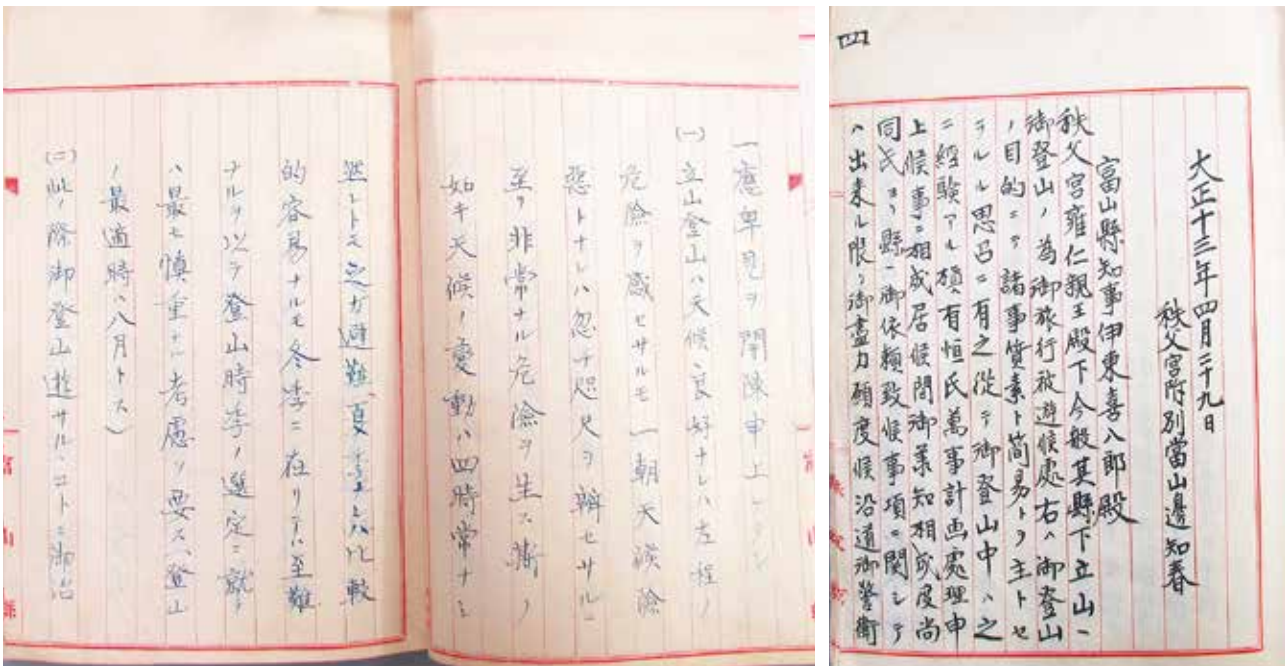 四
大正十三年四月二十九日
秩父宮附別當山邊知春
富山縣知事伊東喜八郎殿
秩父宮雍仁親王殿下今般其縣下立山ヘ
御登山ノ為御旅行被遊候處右ハ御登山
ノ目的ニテ諸事質素ト簡易トヲ主トセ
ラルル思召ニ有之従テ御登山中ハ之
ニ經験アル槇有恒氏萬事計画處理申
上候事ニ相成居候間御承知相成度尚
同氏ヨリ縣ヘ御依頼致候事項ニ関シテ
ハ出来ル限リ御盡力願度候沿道御警衛
一應卑見ヲ開陳申上
(一)立山登山ハ天候良好ナレハ左程ノ
危險ヲ感セサルモ一朝天候險
惡トナレハ忽チ咫尺ヲ辨セサルニ
至リ非常ナル危險ヲ生ス斯ノ
如キ天候ノ変動ハ四時常ナシ
然レトモ之カ避難夏季ハ比較
的容易ナルモ冬季ニ在リテハ至難
ナルヲ以テ登山時季ノ選定ニ就テ
ハ最モ慎重ナル考慮ヲ要ス(登山
ノ最適時ハ八月トス)
(二)此ノ際御登山遊サルヽコトニ御治
富山縣